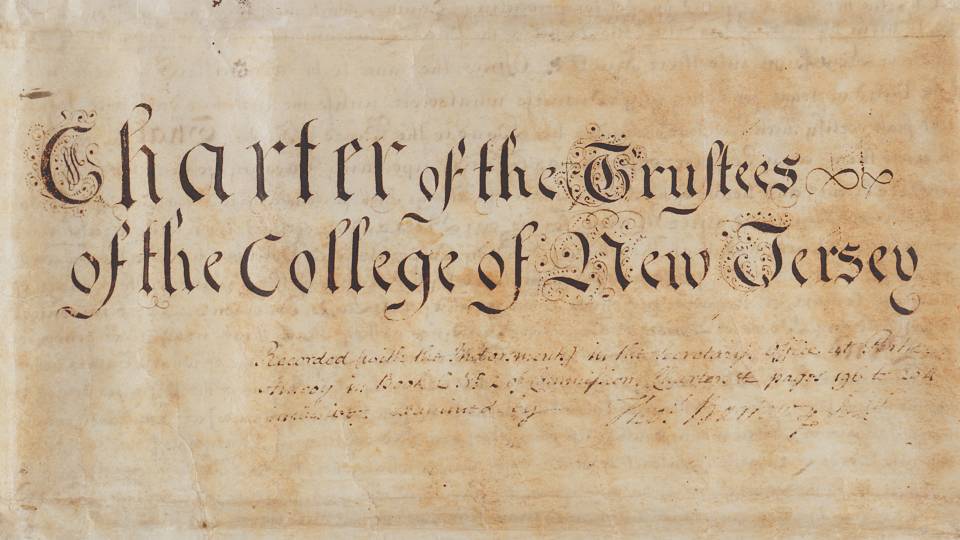 Charter of the Trustees
of the College of New Jersey
Recorded (with the Indorsment) in the Secretary's office at Perth
Amboy in Book C No. 2 of Commissions Charters &c pages 196 to 204
examined by Tho.s Bartow